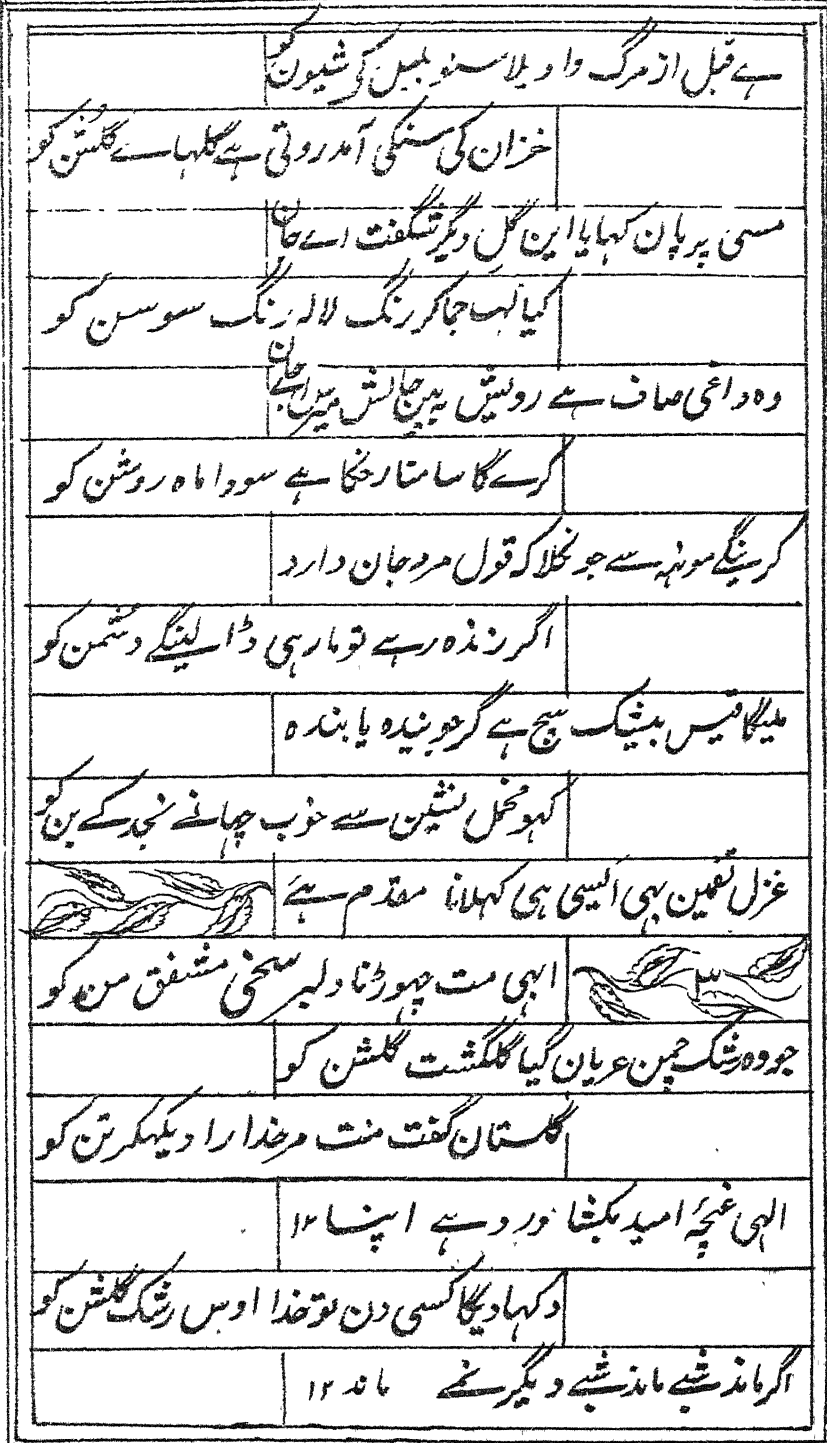 ہے قبل از مرگ واویلا سنو بلبل کی شیون کو
خزان کی سنکی آمد روتی ہے گلہاے گلشن کو
مسی پر پان کہایا این گلِ دیگر شگفت اے جان
کیا لب جماکر رنگ لالہ رنگ سوسن کو
وہ داغی صاف ہے رویش
کرے گا سامنا رخکا ہے سودا ماہ روشن کو
کرینگے مونہہ سے جو نکلا کہ قول مرد جان دارد
اگر زندہ رہے تو مار ہی ڈالینگے دشمن کو
ملیگا قیس بیشک سچ ہے گر جویندہ یابندہ
کہو محمل نشین سے خوب چہانے نجد کے بن کو
غزل تضمین بہی ایسی ہی کہلانا مقدم ہے
ابہی مت چہوڑنا دلبر سخی مشفق من کو
۳
جو وہ رشک چمن عریان گیا گلگشت گلشن کو
گلستان گفت منت مر خدا را دیکہکر تن کو
الہی غنچۂ امید بکشا ورد ہے اپنا ۱۲
دکہا دیگا کسی دن تو خدا اوس رشک گلشن کو
اگر ماند شبے ماند شبے دیگر نمے ماند ۱۲